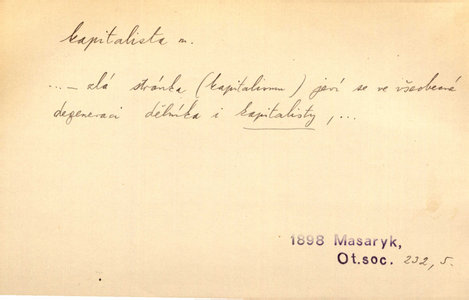 kapitalista m.
... – zlá stránka (kapitalismu) jeví se ve všeobecné
degeneraci dělníka i kapitalisty, ...
1898 Masaryk,
Ot.soc. 232, 5.